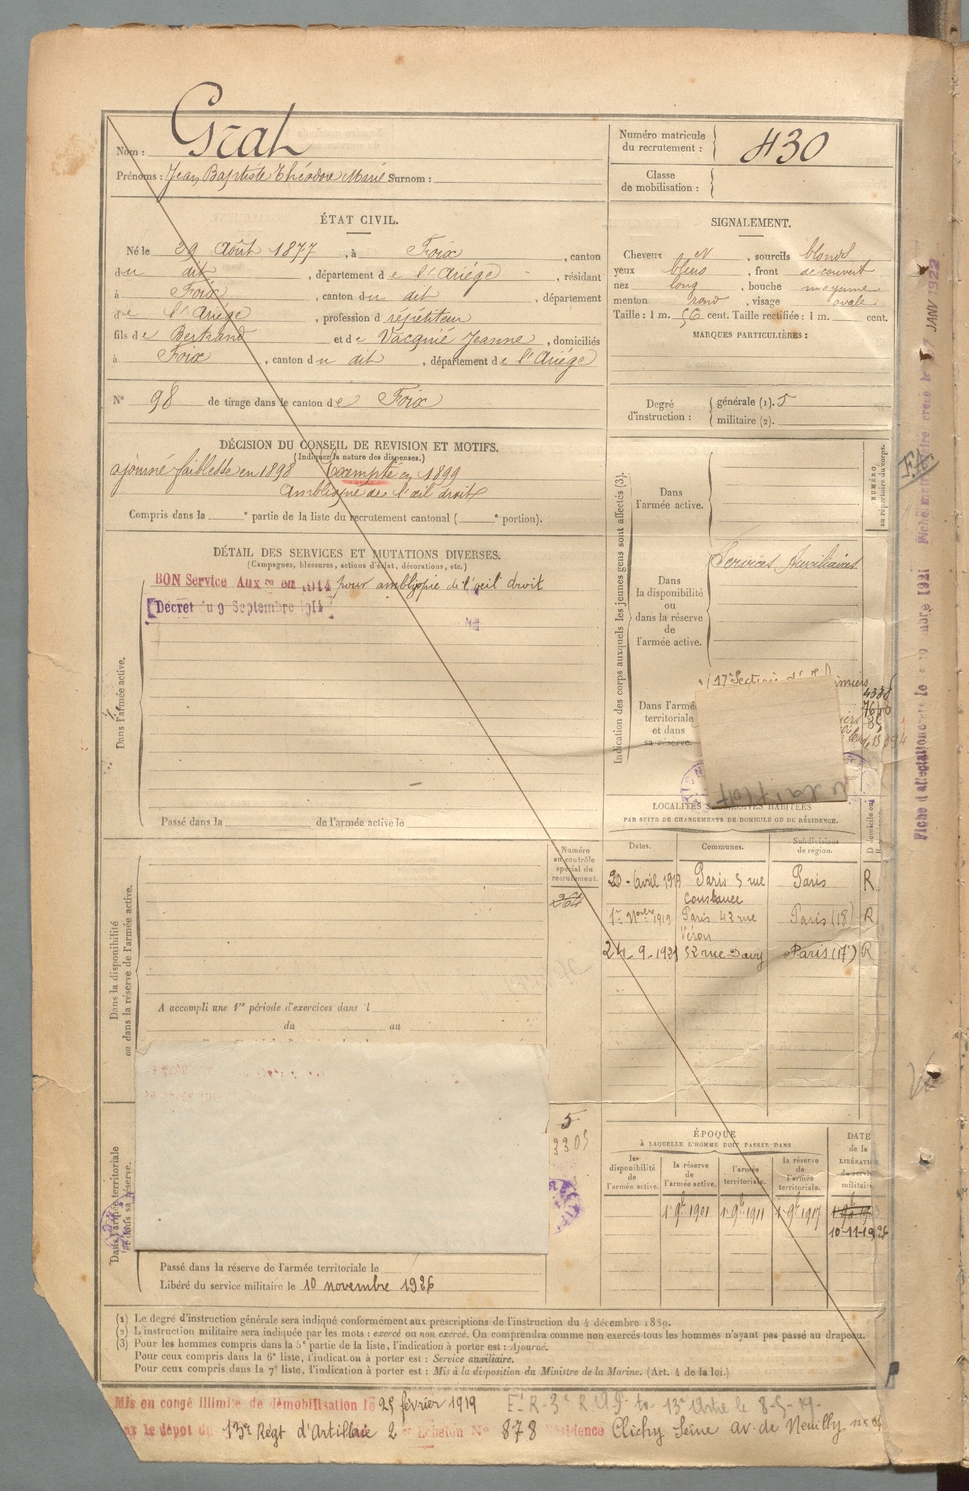 Nom : Grat
Prénoms : Jean Baptiste Théodore Marie Surnom :
Numéro matricule du recrutement : 430
Classe de mobilisation :
ÉTAT CIVIL.
Né le 29 Août 1877, à Foix, canton
du dit, département de l'Ariége, résidant
à Foix, canton du dit, département
de l'Ariége, profession d répétiteur
fils de Bertrand et de Vacquié Jeanne, domiciliés
à Foix, canton du dit, département de l'Ariége
N° 98 de tirage dans le canton de Foix
SIGNALEMENT.
Cheveux et, sourcils blonds
yeux bleus, front découvert
nez long, bouche moyenne
menton rond, visage ovale
Taille : 1 m. 56 cent. Taille rectifiée : 1 m. cent.
MARQUES PARTICULIÈRES :
Degré d'instruction : générale (1). 5
militaire (2).
DÉCISION DU CONSEIL DE REVISION ET MOTIFS.
(Indiquer la nature des dispenses.)
ajourné faiblesse en 1898 Exempté en 1899
Amblyopie de l'œil droit
Compris dans la e partie de la liste du recrutement cantonal ( e portion).
DÉTAIL DES SERVICES ET MUTATIONS DIVERSES.
(Campagnes, blessures, actions d'éclat, décorations, etc.)
BON Service Aux en 1914 pour amblyopie de l'œil droit
Décret du 9 Septembre 1914
Dans l'armée active.
Passé dans la de l'armée active le
Indication des corps auxquels les jeunes gens sont affectés (3).
NUMÉRO au répertoire du corps.
Dans l'armée active.
Dans la disponibilité ou dans la réserve de l'armée active.
Services Auxiliaires
Dans l'armée territoriale et dans sa réserve.
17e Section
4338
7640
85
LOCALITÉS SUCCESSIVES HABITÉES
PAR SUITE DE CHANGEMENTS DE DOMICILE OU DE RÉSIDENCE.
Dates. Communes. Subdivisions de région.
20 Avril 1919 Paris 5 rue Constance Paris R
1er Nbre 1919 Paris 43 rue Véron Paris (18) R
24-9-1921 52 rue Davy Paris (17e) R
Numéro au contrôle spécial du recrutement.
Dans la disponibilité ou dans la réserve de l'armée active.
A accompli une 1re période d'exercices dans l
du au
5
3305
Dans l'armée territoriale et dans sa réserve.
ÉPOQUE
À LAQUELLE L'HOMME DOIT PASSER DANS
la disponibilité de l'armée active. la réserve de l'armée active. l'armée territoriale. la réserve de l'armée territoriale.
DATE de la LIBÉRATION du service militaire.
1 9bre 1901 1 9bre 1911 1 9bre 1917
10-11-1926
Passé dans la réserve de l'armée territoriale le
Libéré du service militaire le 10 novembre 1926
(1) Le degré d'instruction générale sera indiqué conformément aux prescriptions de l'instruction du 4 décembre 1889.
(2) L'instruction militaire sera indiquée par les mots : exercé ou non exercé. On comprendra comme non exercés tous les hommes n'ayant pas passé au drapeau.
(3) Pour les hommes compris dans la 5e partie de la liste, l'indication à porter est : Ajourné.
Pour ceux compris dans la 6e liste, l'indication à porter est : Service auxiliaire.
Pour ceux compris dans la 7e liste, l'indication à porter est : Mis à la disposition du Ministre de la Marine. (Art. 4 de la loi.)
Mis en congé illimité de démobilisation le 25 février 1919
par le dépôt du 13e Régt d'Artillerie 2e Echelon N° 878 Résidence Clichy Seine av. de Neuilly
JANV 1922